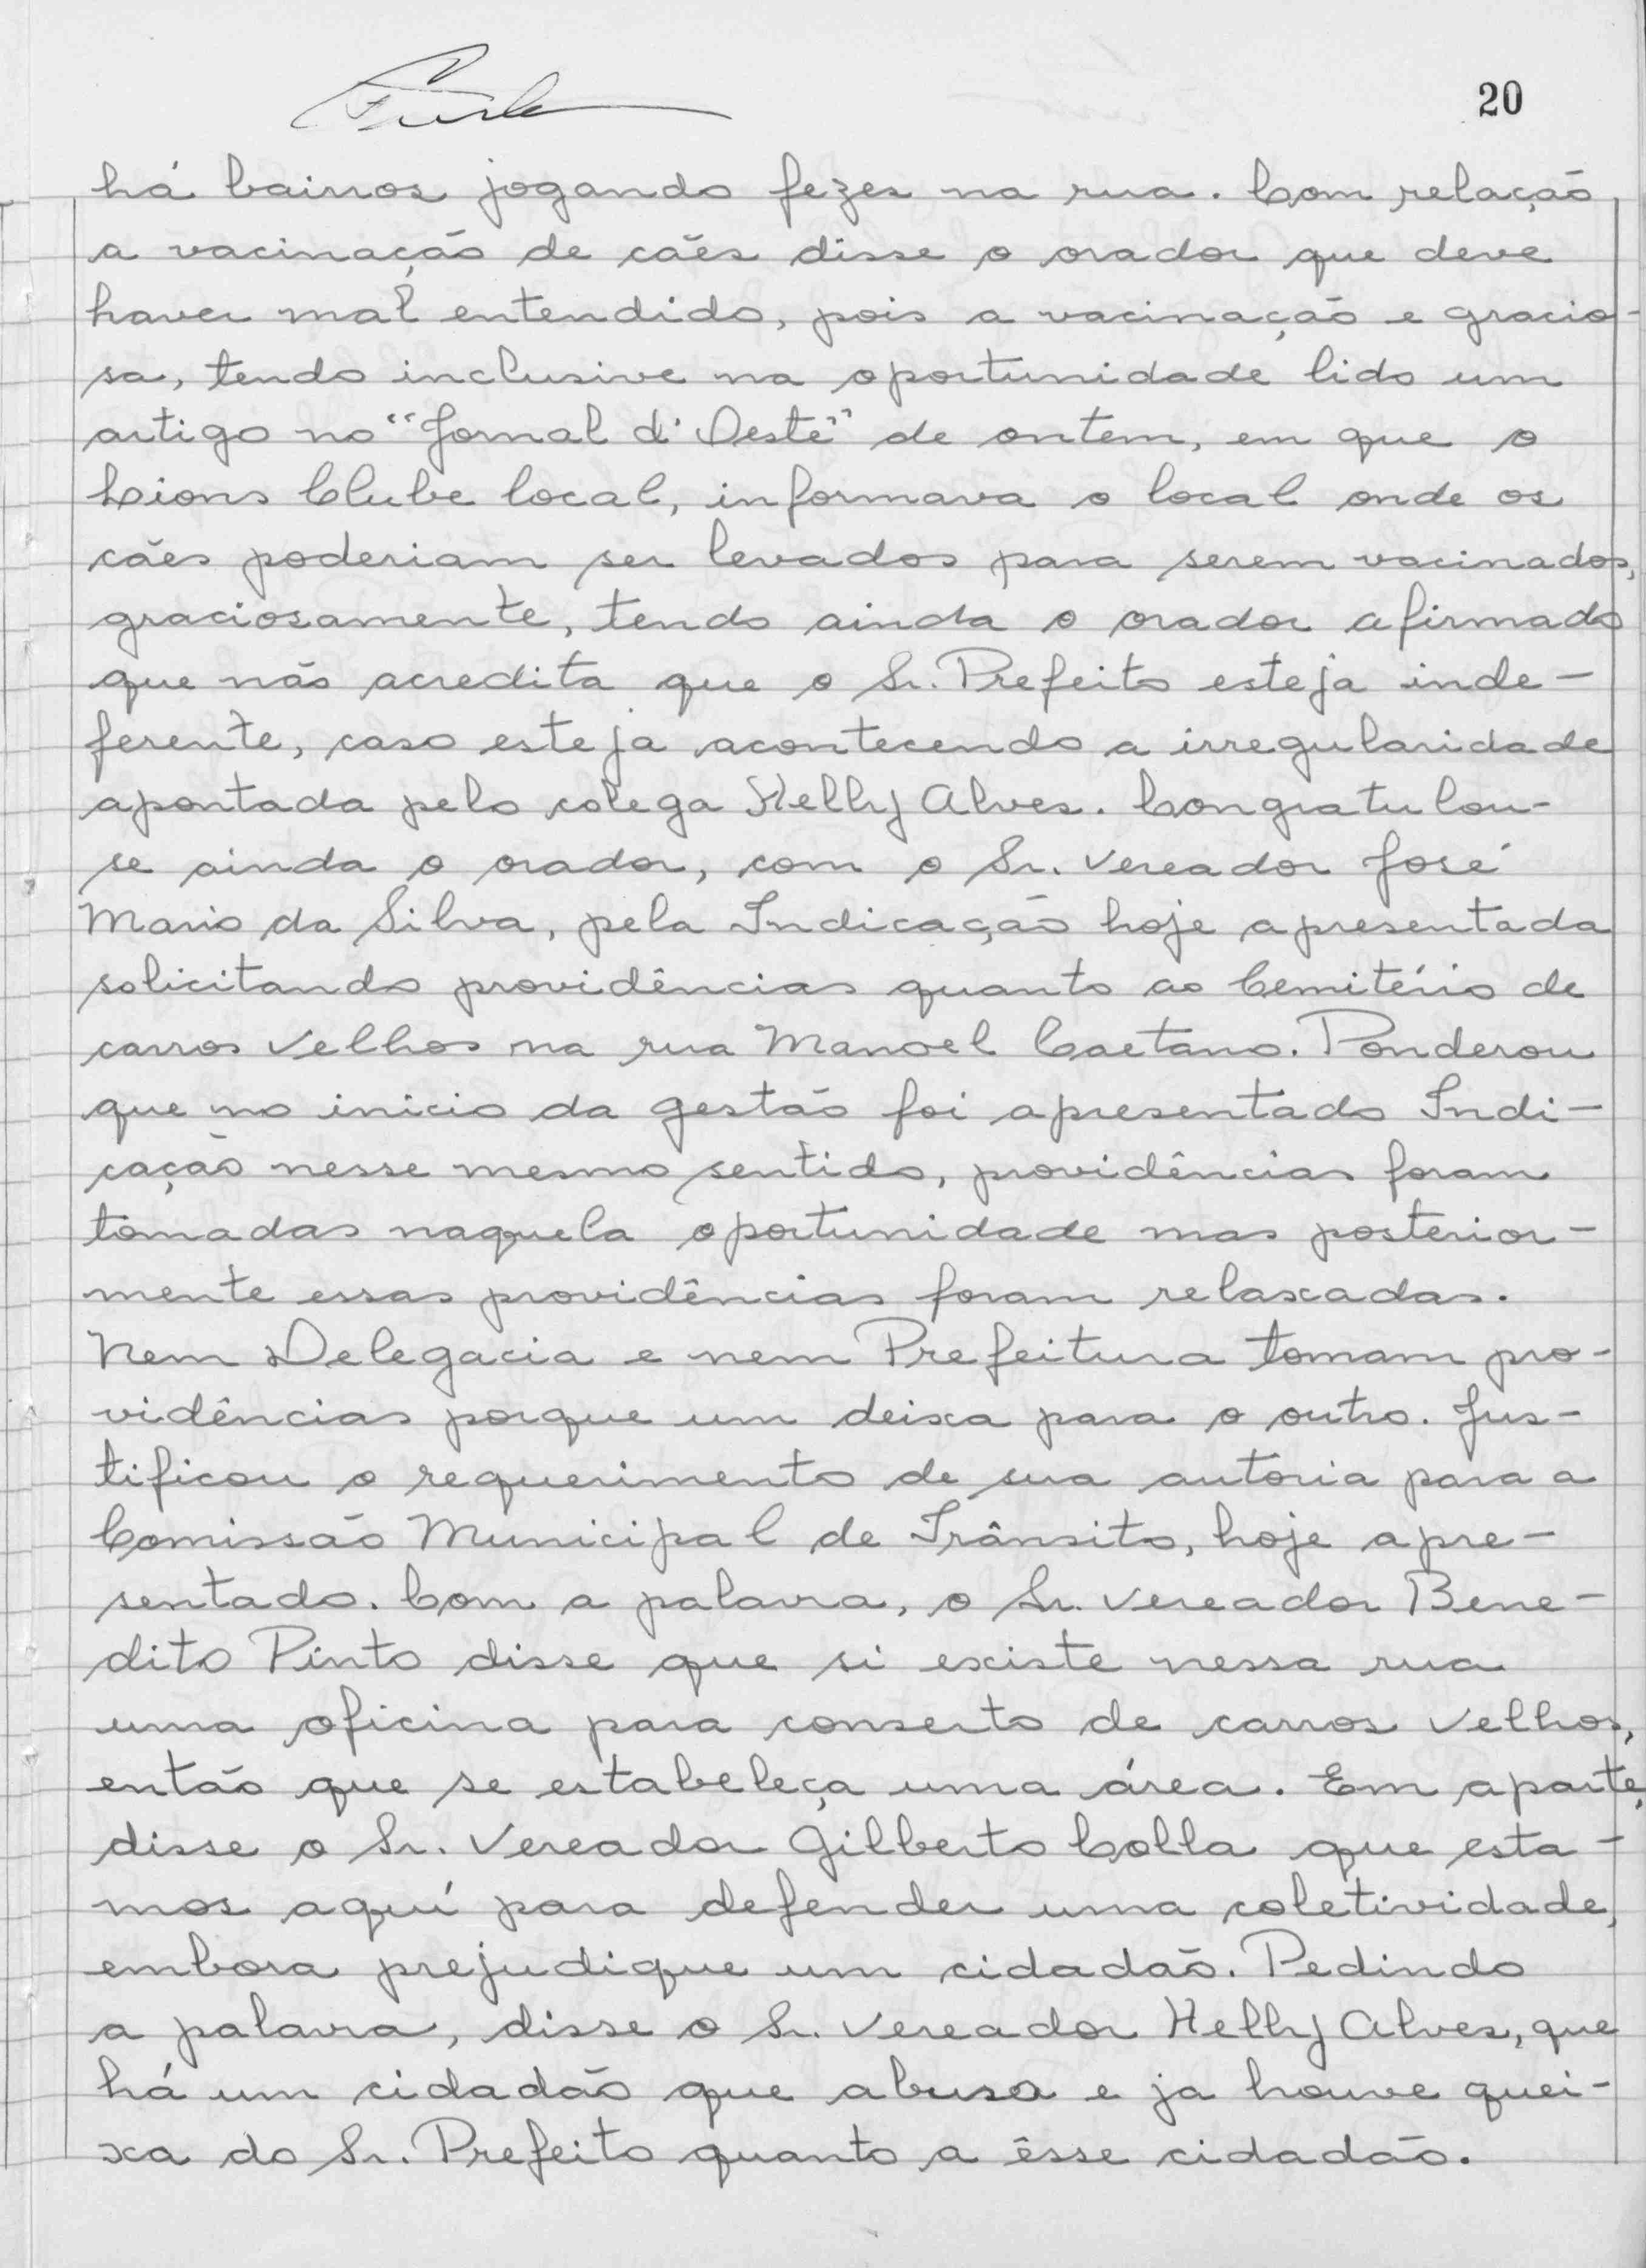 20
há bairros jogando fezes na rua. Com relação
a vacinação de cães disse o orador que deve
haver mal entendido, pois a vacinação e gracio-
sa, tendo inclusive na oportunidade lido um
artigo no "Jornal d'Oeste" de ontem, em que o
Lions Clube local, informava o local onde os
cães poderiam ser levados para serem vacinados,
graciosamente, tendo ainda o orador afirmado
que não acredita que o Sr. Prefeito esteja inde-
ferente, caso esteja acontecendo a irregularidade
apontada pelo colega Helly Alves. Congratulou-
se ainda o orador, com o Sr. Vereador José
Mario da Silva, pela Indicação hoje apresentada
solicitando providências quanto ao Cemitério de
carros velhos na rua Manoel Caetano. Ponderou
que no inicio da gestão foi apresentado Indi-
cação nesse mesmo sentido, providências foram
tomadas naquela oportunidade mas posterior-
mente essas providências foram relaxadas.
Nem Delegacia e nem Prefeitura tomam pro-
vidências porque um deixa para o outro. Jus-
tificou o requerimento de sua autoria para a
Comissão Municipal de Trânsito, hoje apre-
sentado. Com a palavra, o Sr. Vereador Bene-
dito Pinto disse que si existe nessa rua
uma oficina para conserto de carros velhos,
então que se estabeleça uma área. Em aparte,
disse o Sr. Vereador Gilberto Colla que esta-
mos aquí para defender uma coletividade,
embora prejudique um cidadão. Pedindo
a palavra, disse o Sr. Vereador Helly Alves, que
há um cidadão que abusa e ja houve quei-
xa do Sr. Prefeito quanto a êsse cidadão.